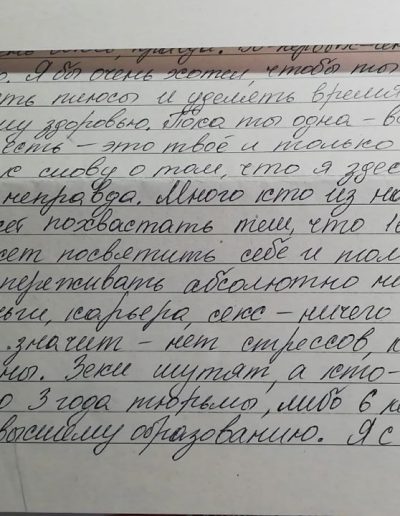 о. Я бы очень хотел, чтобы ты
ть плюсы и уделять время
му здоровью. Пока ты одна – в
есть – это твоё и только
к слову о том, что я здес
неправда. Много кто из на
ет похвастать тем, что 16
жет посвятить себе и том
переживать абсолютно не
ьги, карьера, секс – ничего
значит – нет стрессов, к
ны. Зеки шутят, а кто-
о 3 года тюрьмы, либо 6 к
высшему образованию. Я с